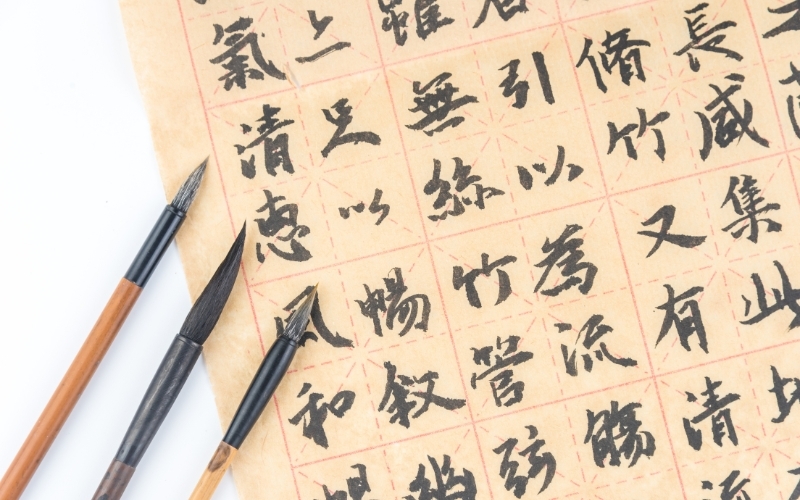 長咸集此地
脩竹又有清流
引以為流觴
雖無絲竹管弦
亦足以暢敘幽
氣清惠風和暢